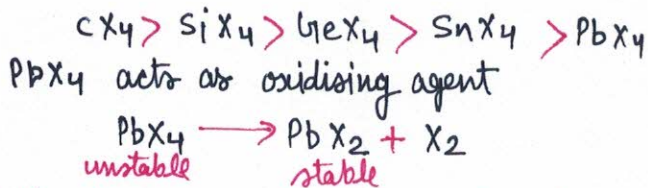 CX₄ > SiX₄ > GeX₄ > SnX₄ > PbX₄
PbX₄ acts as oxidising agent
PbX₄ → PbX₂ + X₂
unstable stable